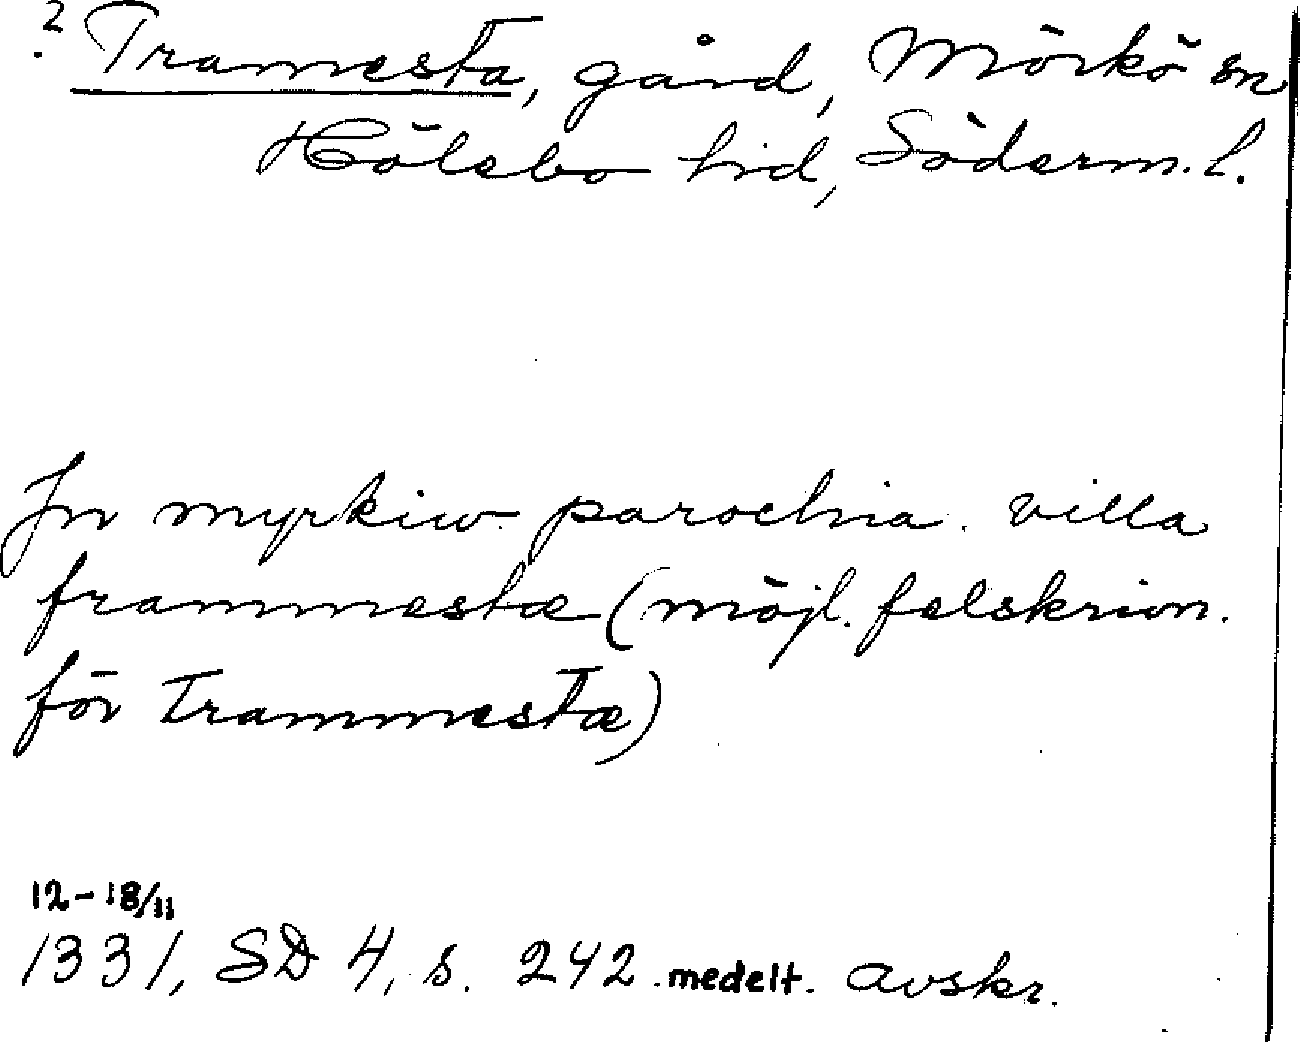 ? Tramesta, gård, Mörkö sn
Hölebo hd, Söderm. l.
In myrkiw. parochia. villa
frammestæ (möjl. felskrivn.
för Trammestæ)
12-18/11
1331, SD 4, s. 242. medelt. avskr.